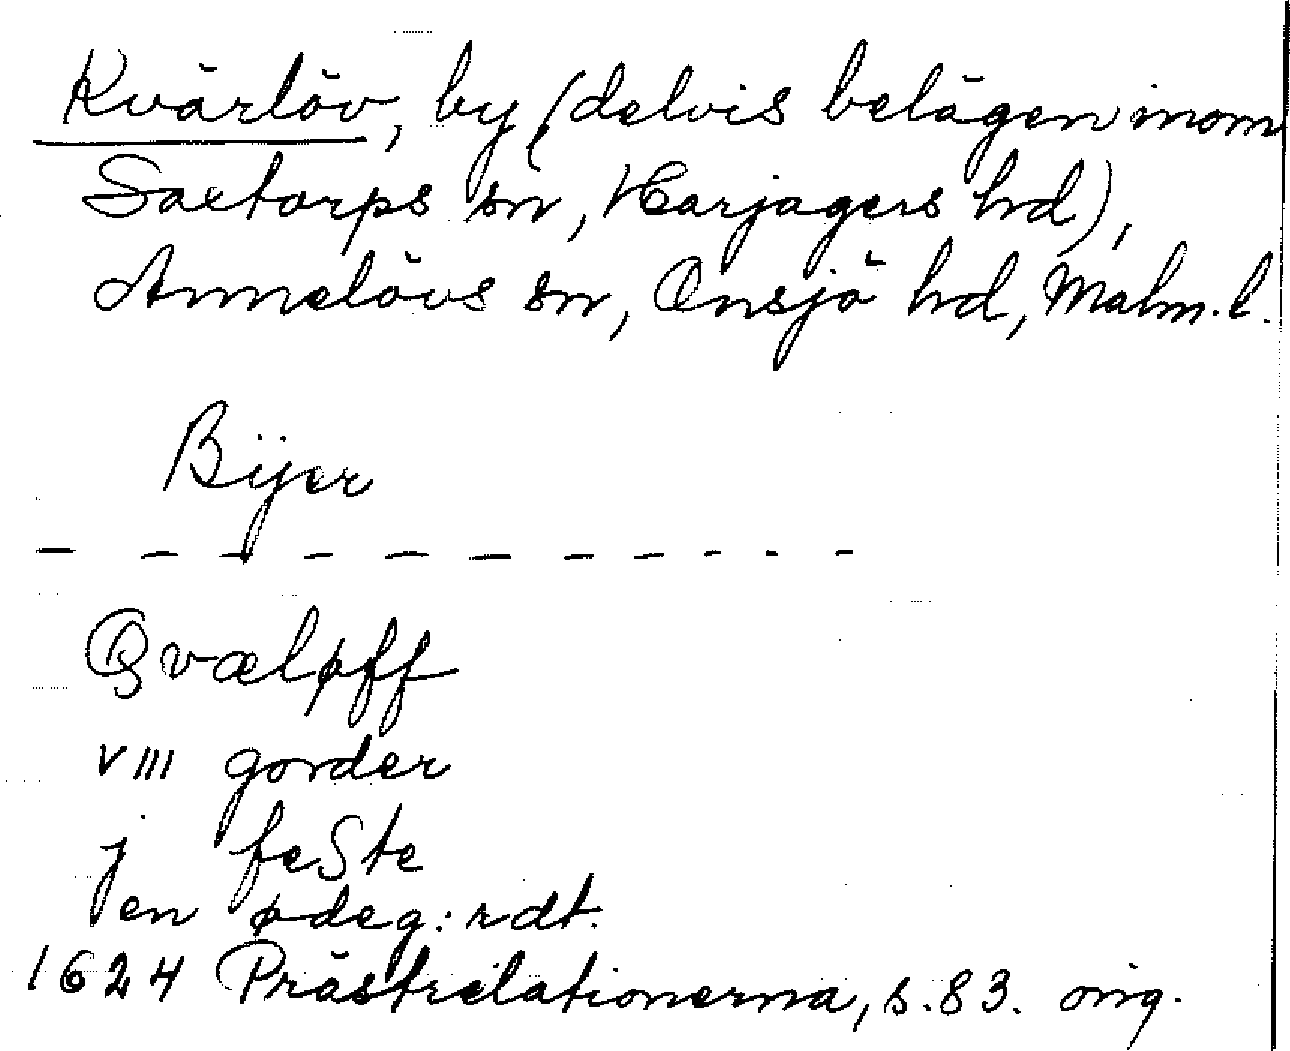 Kvärlöv, by (delvis belägen inom
Saxtorps sn, Harjagers hd),
Annelövs sn, Onsjö hd, Malm. l.
Bijer
— — — — — — — — — — —
Qvæløff
VIII gorder
j feste
en ødeg:rdt.
1624 Prästrelationerna, s. 83. orig.